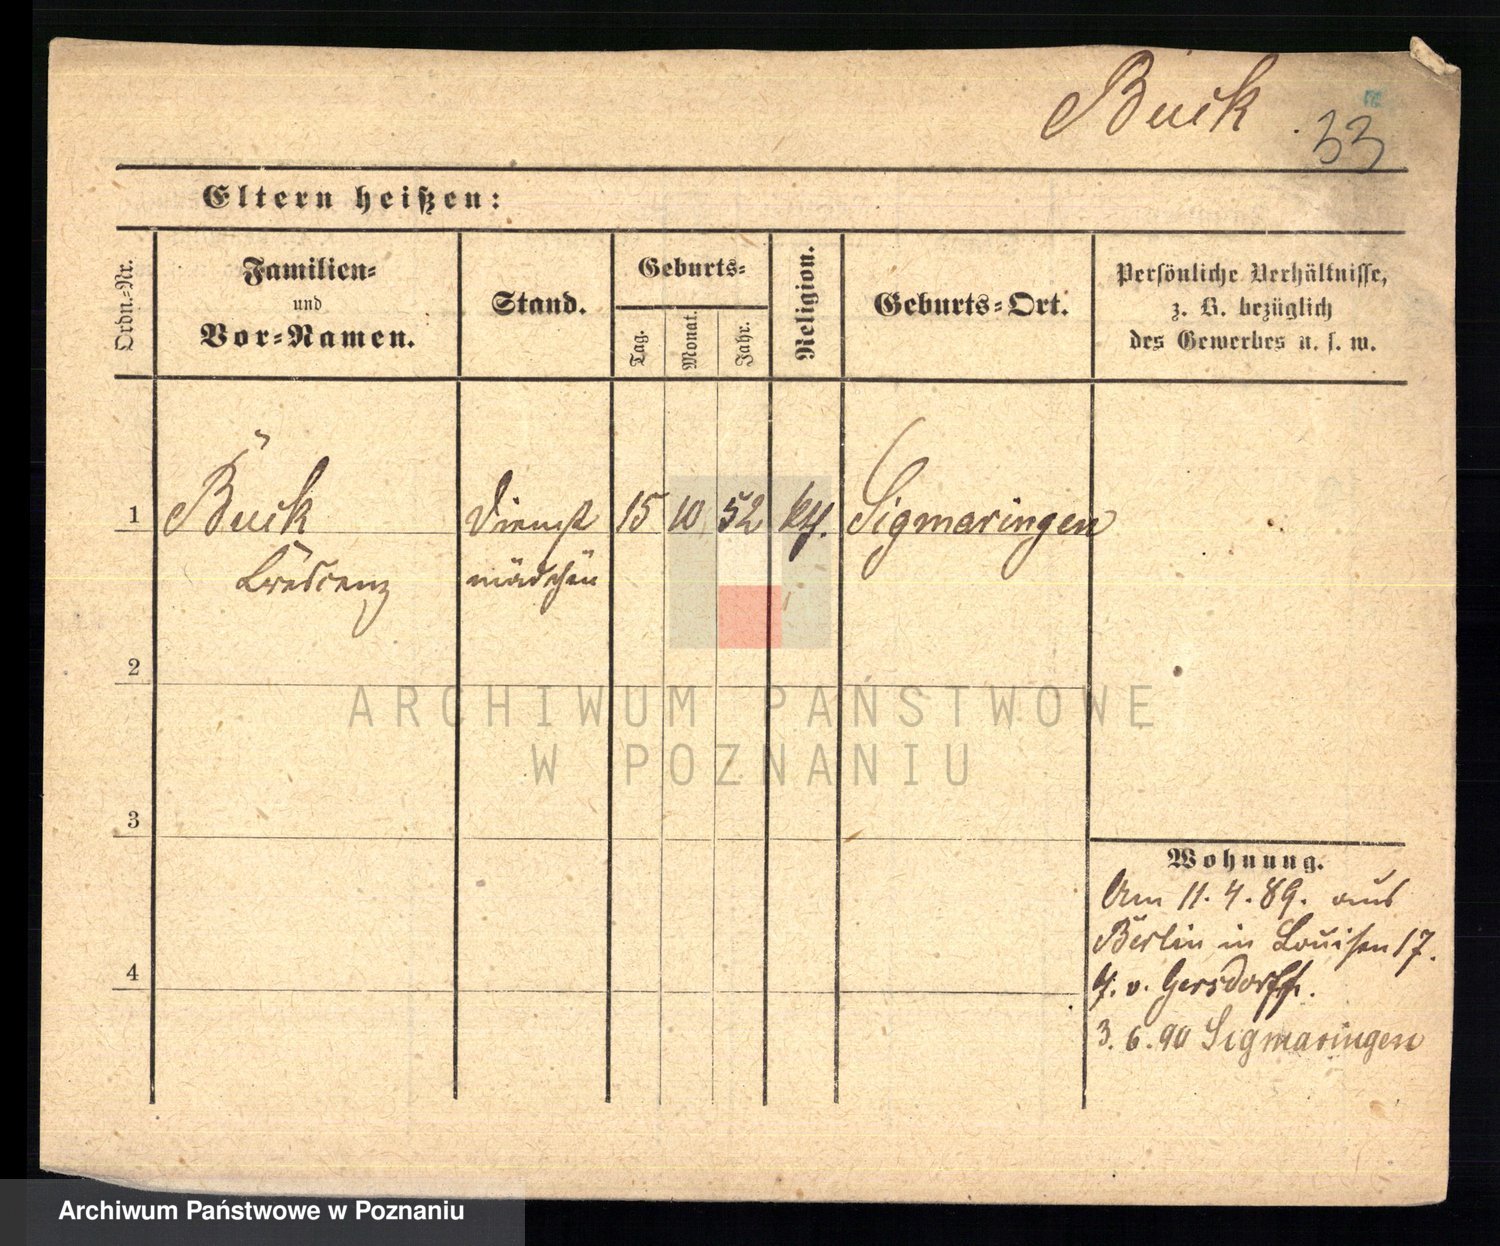 Buck 33
Eltern heißen:
Ordn.-Nr.
Familien-
und
Vor-Namen.
Stand.
Geburts-
Tag.
Monat.
Jahr.
Religion.
Geburts-Ort.
Persönliche Verhältnisse,
z. B. bezüglich
des Gewerbes u. s. w.
1 Buck Dienst 15 10 52 kth. Sigmaringen
Crescenz mädchen
2
3
4
Wohnung.
Am 11.4.89. aus
Berlin in Louisen 17.
b. v. Gersdorff.
3.6.90 Sigmaringen
ARCHIWUM PAŃSTWOWE
W POZNANIU
Archiwum Państwowe w Poznaniu